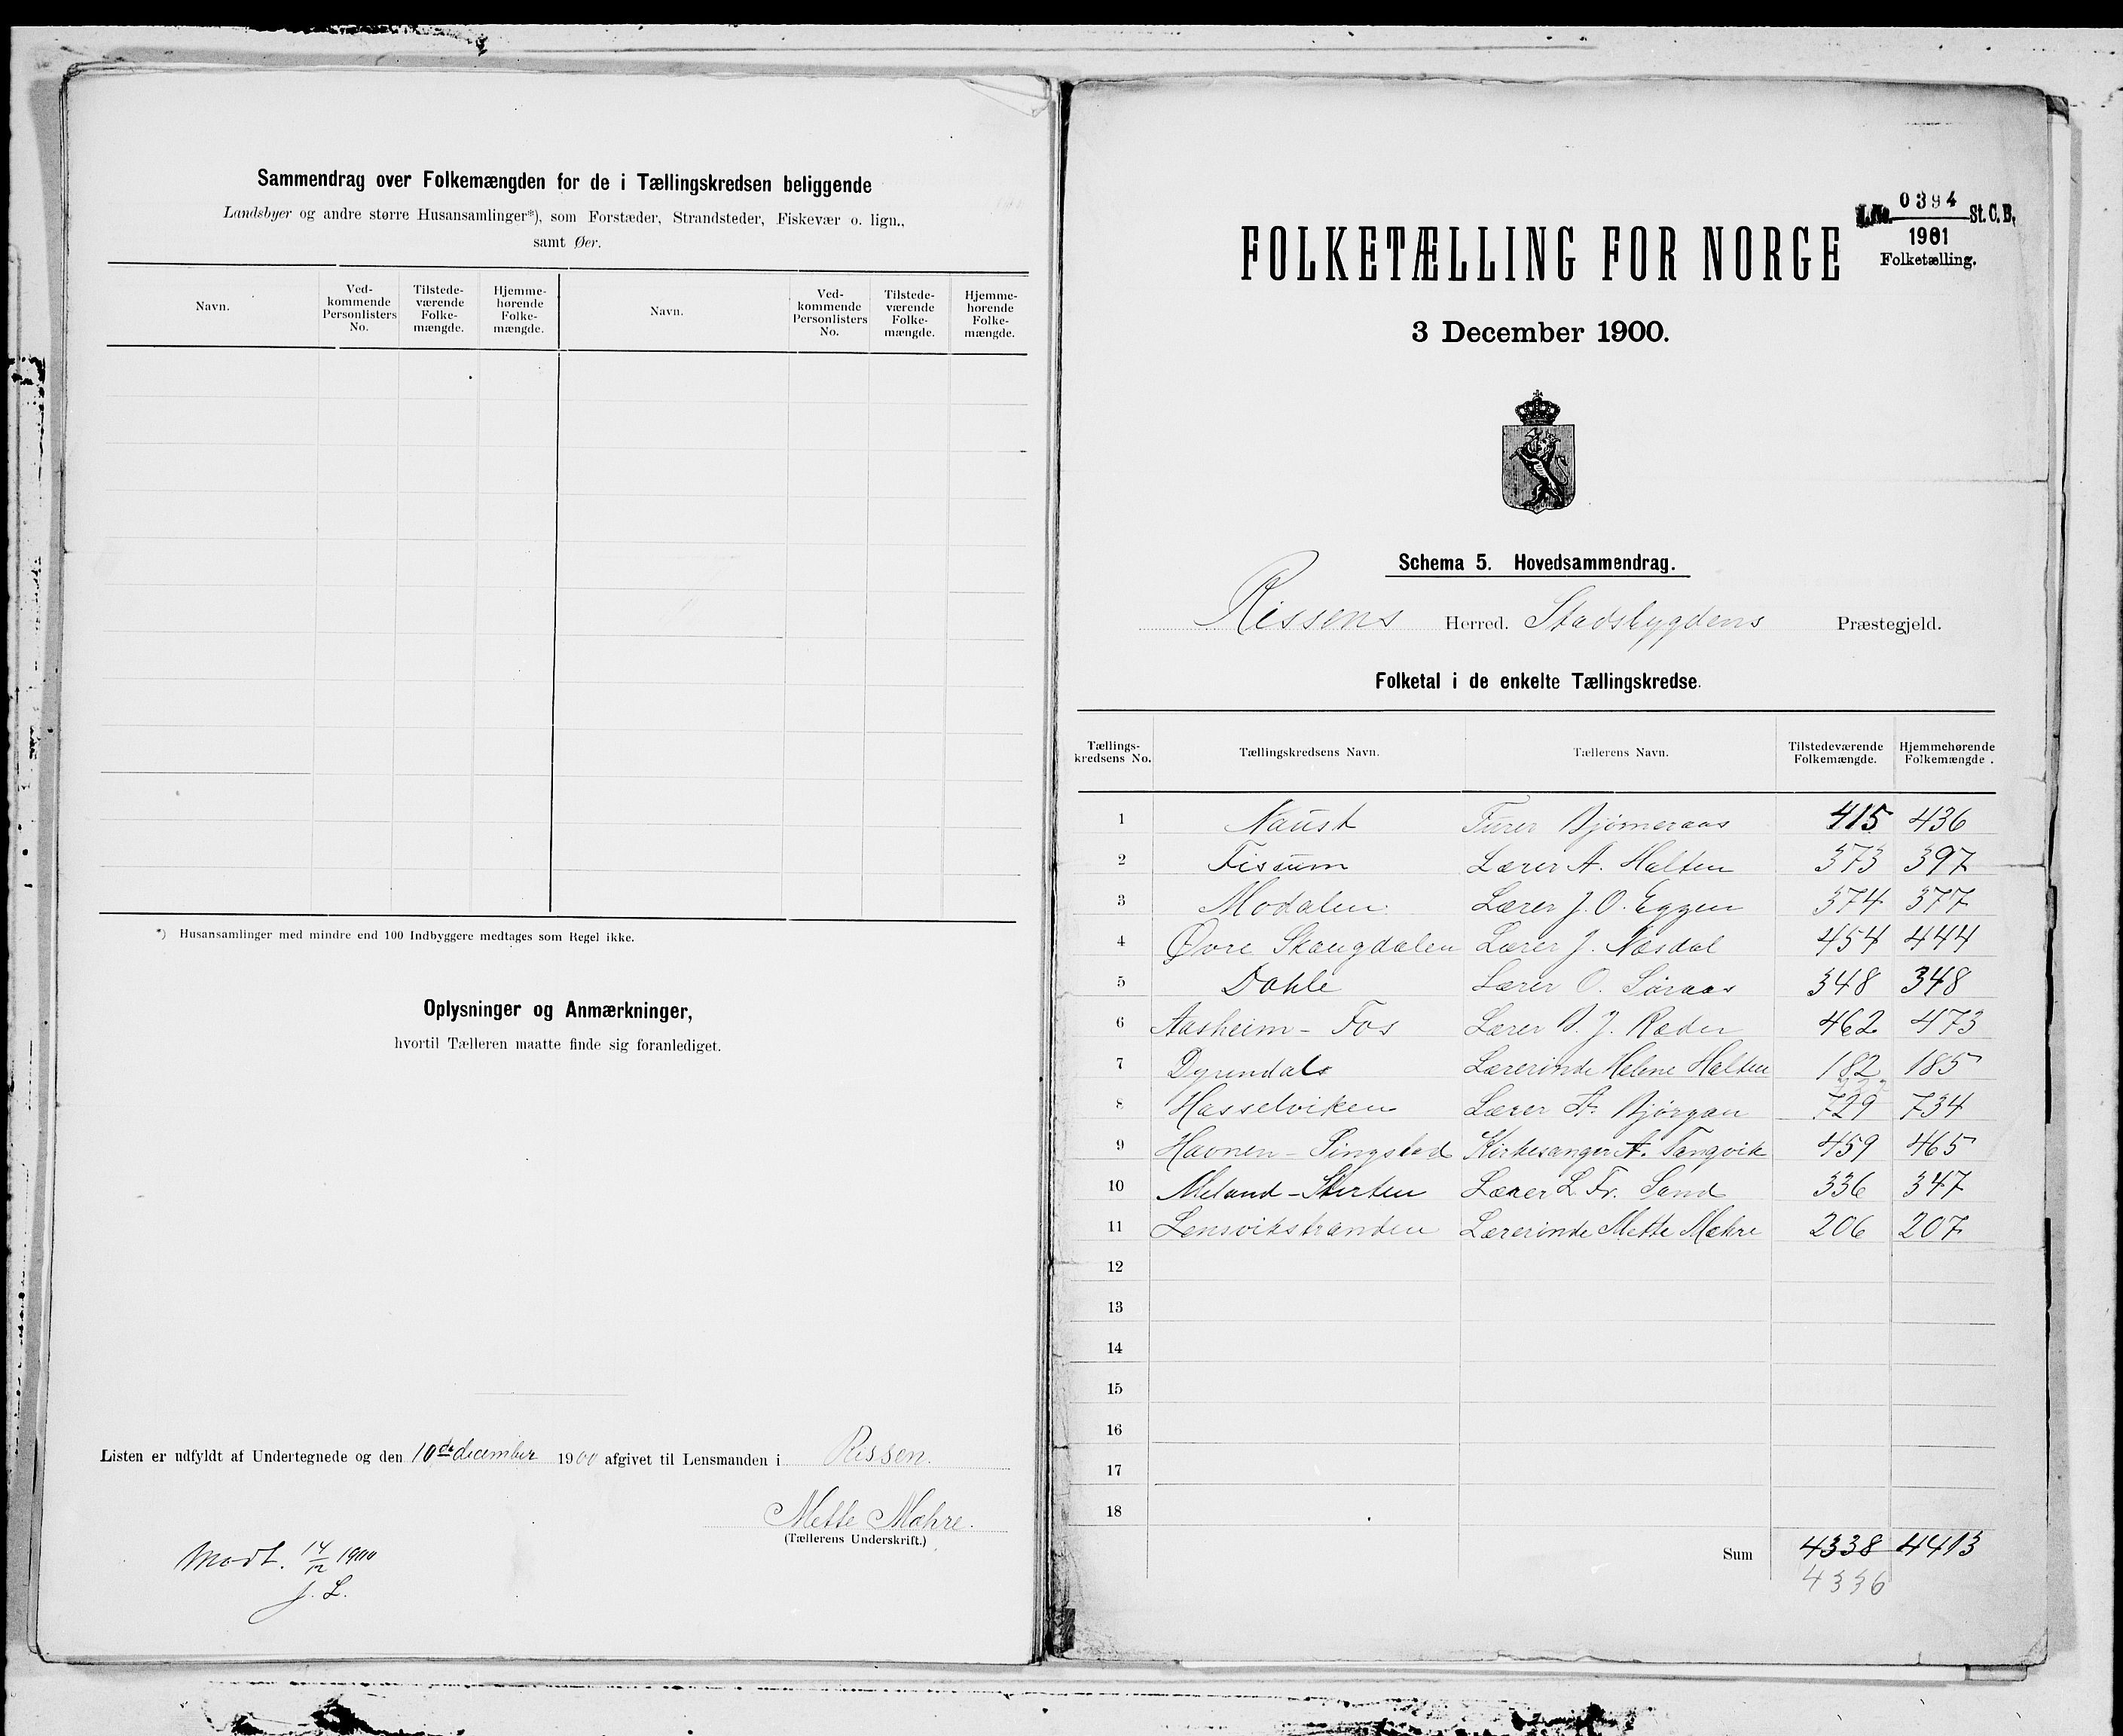 Sammendrag over Folkemængden for de i Tællingskredsen beliggende
Landsbyer og andre større Husansamlinger*), som Forstæder, Strandsteder, Fiskevær o. lign.,
samt Øer.
Navn. Ved-kommende Personlisters No. Tilstede-værende Folke-mængde. Hjemme-hørende Folke-mængde. Navn. Ved-kommende Personlisters No. Tilstede-værende Folke-mængde. Hjemme-hørende Folke-mængde.
*) Husansamlinger med mindre end 100 Indbyggere medtages som Regel ikke.
Oplysninger og Anmærkninger,
hvortil Tælleren maatte finde sig foranlediget.
Listen er udfyldt af Undertegnede og den 10de december 1900 afgivet til Lensmanden i Rissen.
Mette Mæhre.
(Tællerens Underskrift.)
Modt. 14/12 1900
J. L.
I. No. 0394 St. C. B.
1901
Folketælling.
FOLKETÆLLING FOR NORGE
3 December 1900.
Schema 5. Hovedsammendrag.
Rissens Herred. Stadsbygdens Præstegjeld.
Folketal i de enkelte Tællingskredse.
Tællings-kredsens No. Tællingskredsens Navn. Tællerens Navn. Tilstedeværende Folkemængde. Hjemmehørende Folkemængde.
1 Naust Bjørneraas 415 436
2 Fissum Lærer A. Halten 373 397
3 Modalen Lærer J. O. Eggen 374 377
4 Øvre Skaugdalen Lærer J. Næsdal 454 444
5 Dahle Lærer O. Søraas 348 348
6 Aasheim - Fos Lærer B. J. Ræder 462 473
7 Dyrendals Lærerinde Helene Halten 182 185
8 Hasselviken Lærer A. Bjørgan 729 734
9 Havnen - Singstad Kirkesanger A. Tangvik 459 465
10 Meland - Sterten Lærer L. Fr. Sand 336 347
11 Lensvikstranden Lærerinde Mette Mæhre 206 207
12
13
14
15
16
17
18
Sum 4338 4413
4336